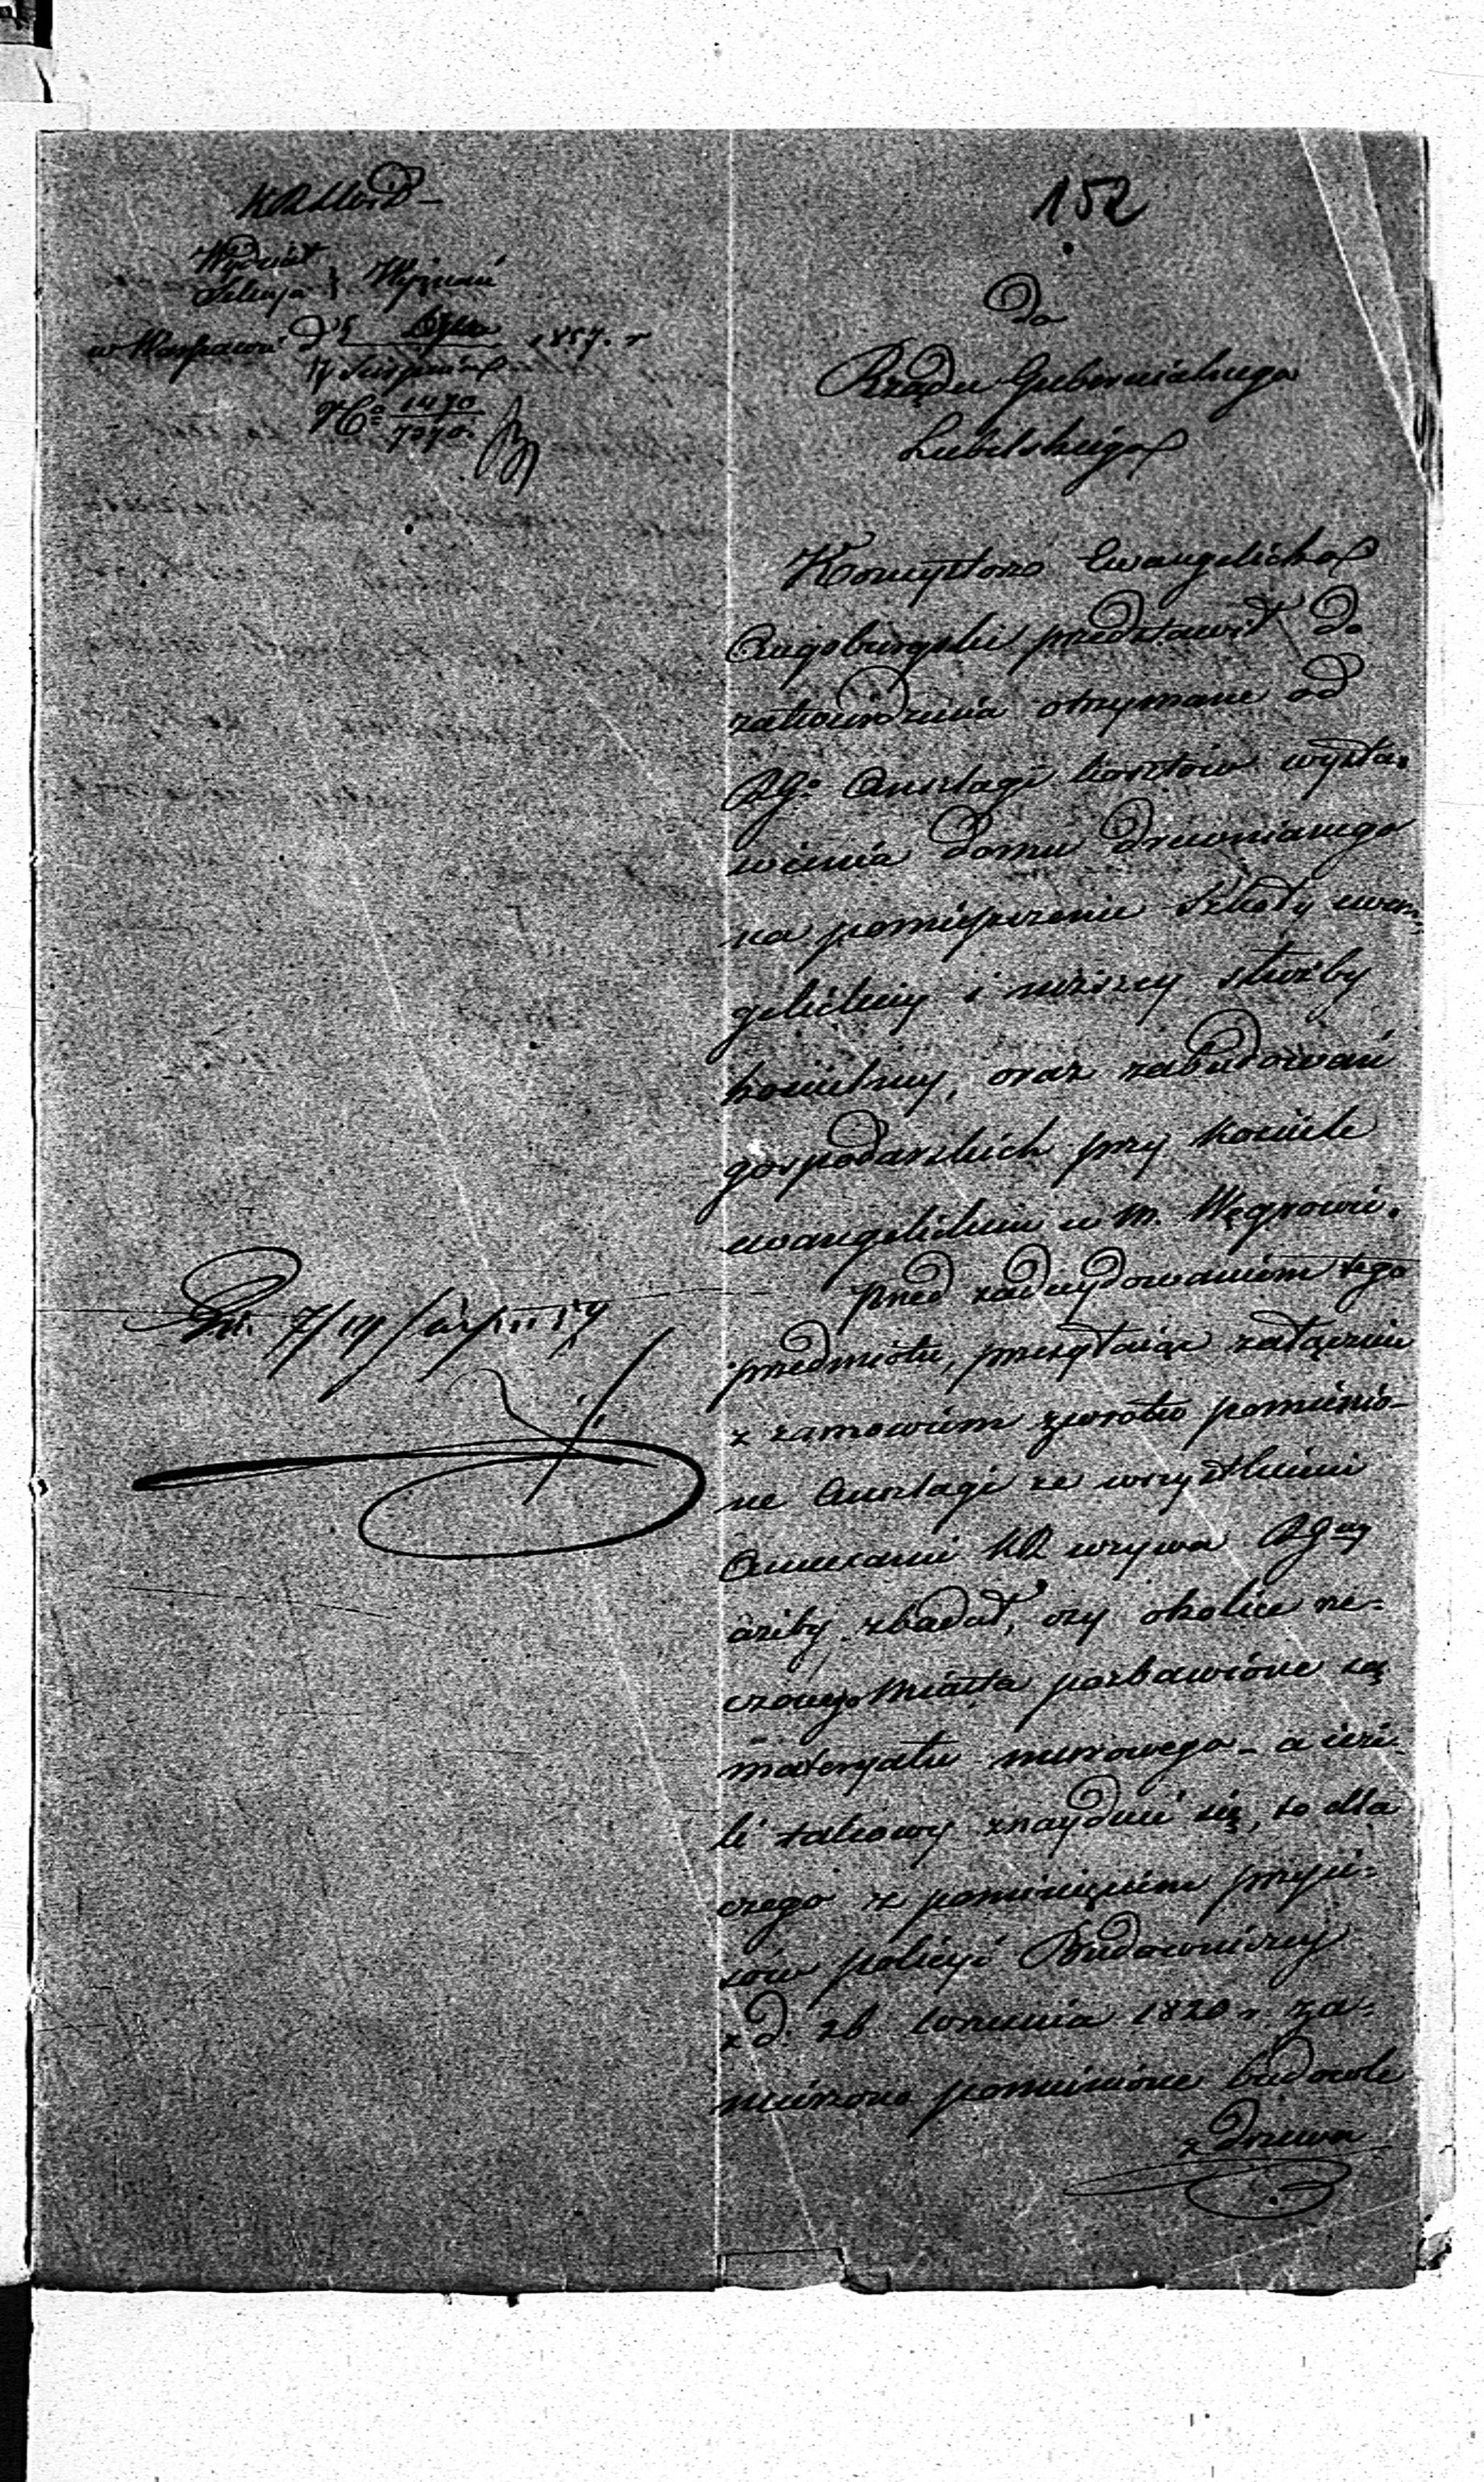 152
Wydział
Sekcya } Wyznań
w Warszawie d. 5 Lipca 1857. r
17 Sierpnia
No 1470
7070.
Do
Rządu Gubernialnego
Lubelskiego
Konsystorz Ewangelicko
Augsburgski przedstawił do
zatwierdzenia otrzymane od
RGo Anszlagi kosztów wysta-
wienia domu drewnianego
na pomieszczenie Szkoły ewan-
gelickiey i niższey służby
kościelney, oraz zabudowań
gospodarskich przy kościele
ewangelickim w M. Węgrowie.
Przed zadecydowaniem tego
przedmiotu, przesyłaiąc załącznie
z zamówieniem zwrotu pomienio-
ne Anszlagi ze wszystkiemi
Annexami KR wzywa RGny
ażeby zbadał, czy okolice rze-
czonego Miasta pozbawione są
materyału murowego - a ieże-
li takowy znayduie się, to dla
czego z pominięciem przepi-
sów policyi Budowniczey
z d. 26 Września 1820 r. za-
mierzono pomienione budowle
z drzewa